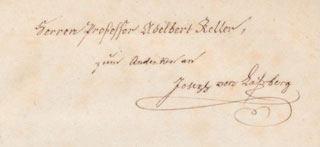 Herren Professor Adelbert Keller,
zum Andenken an
Joseph von Laßberg